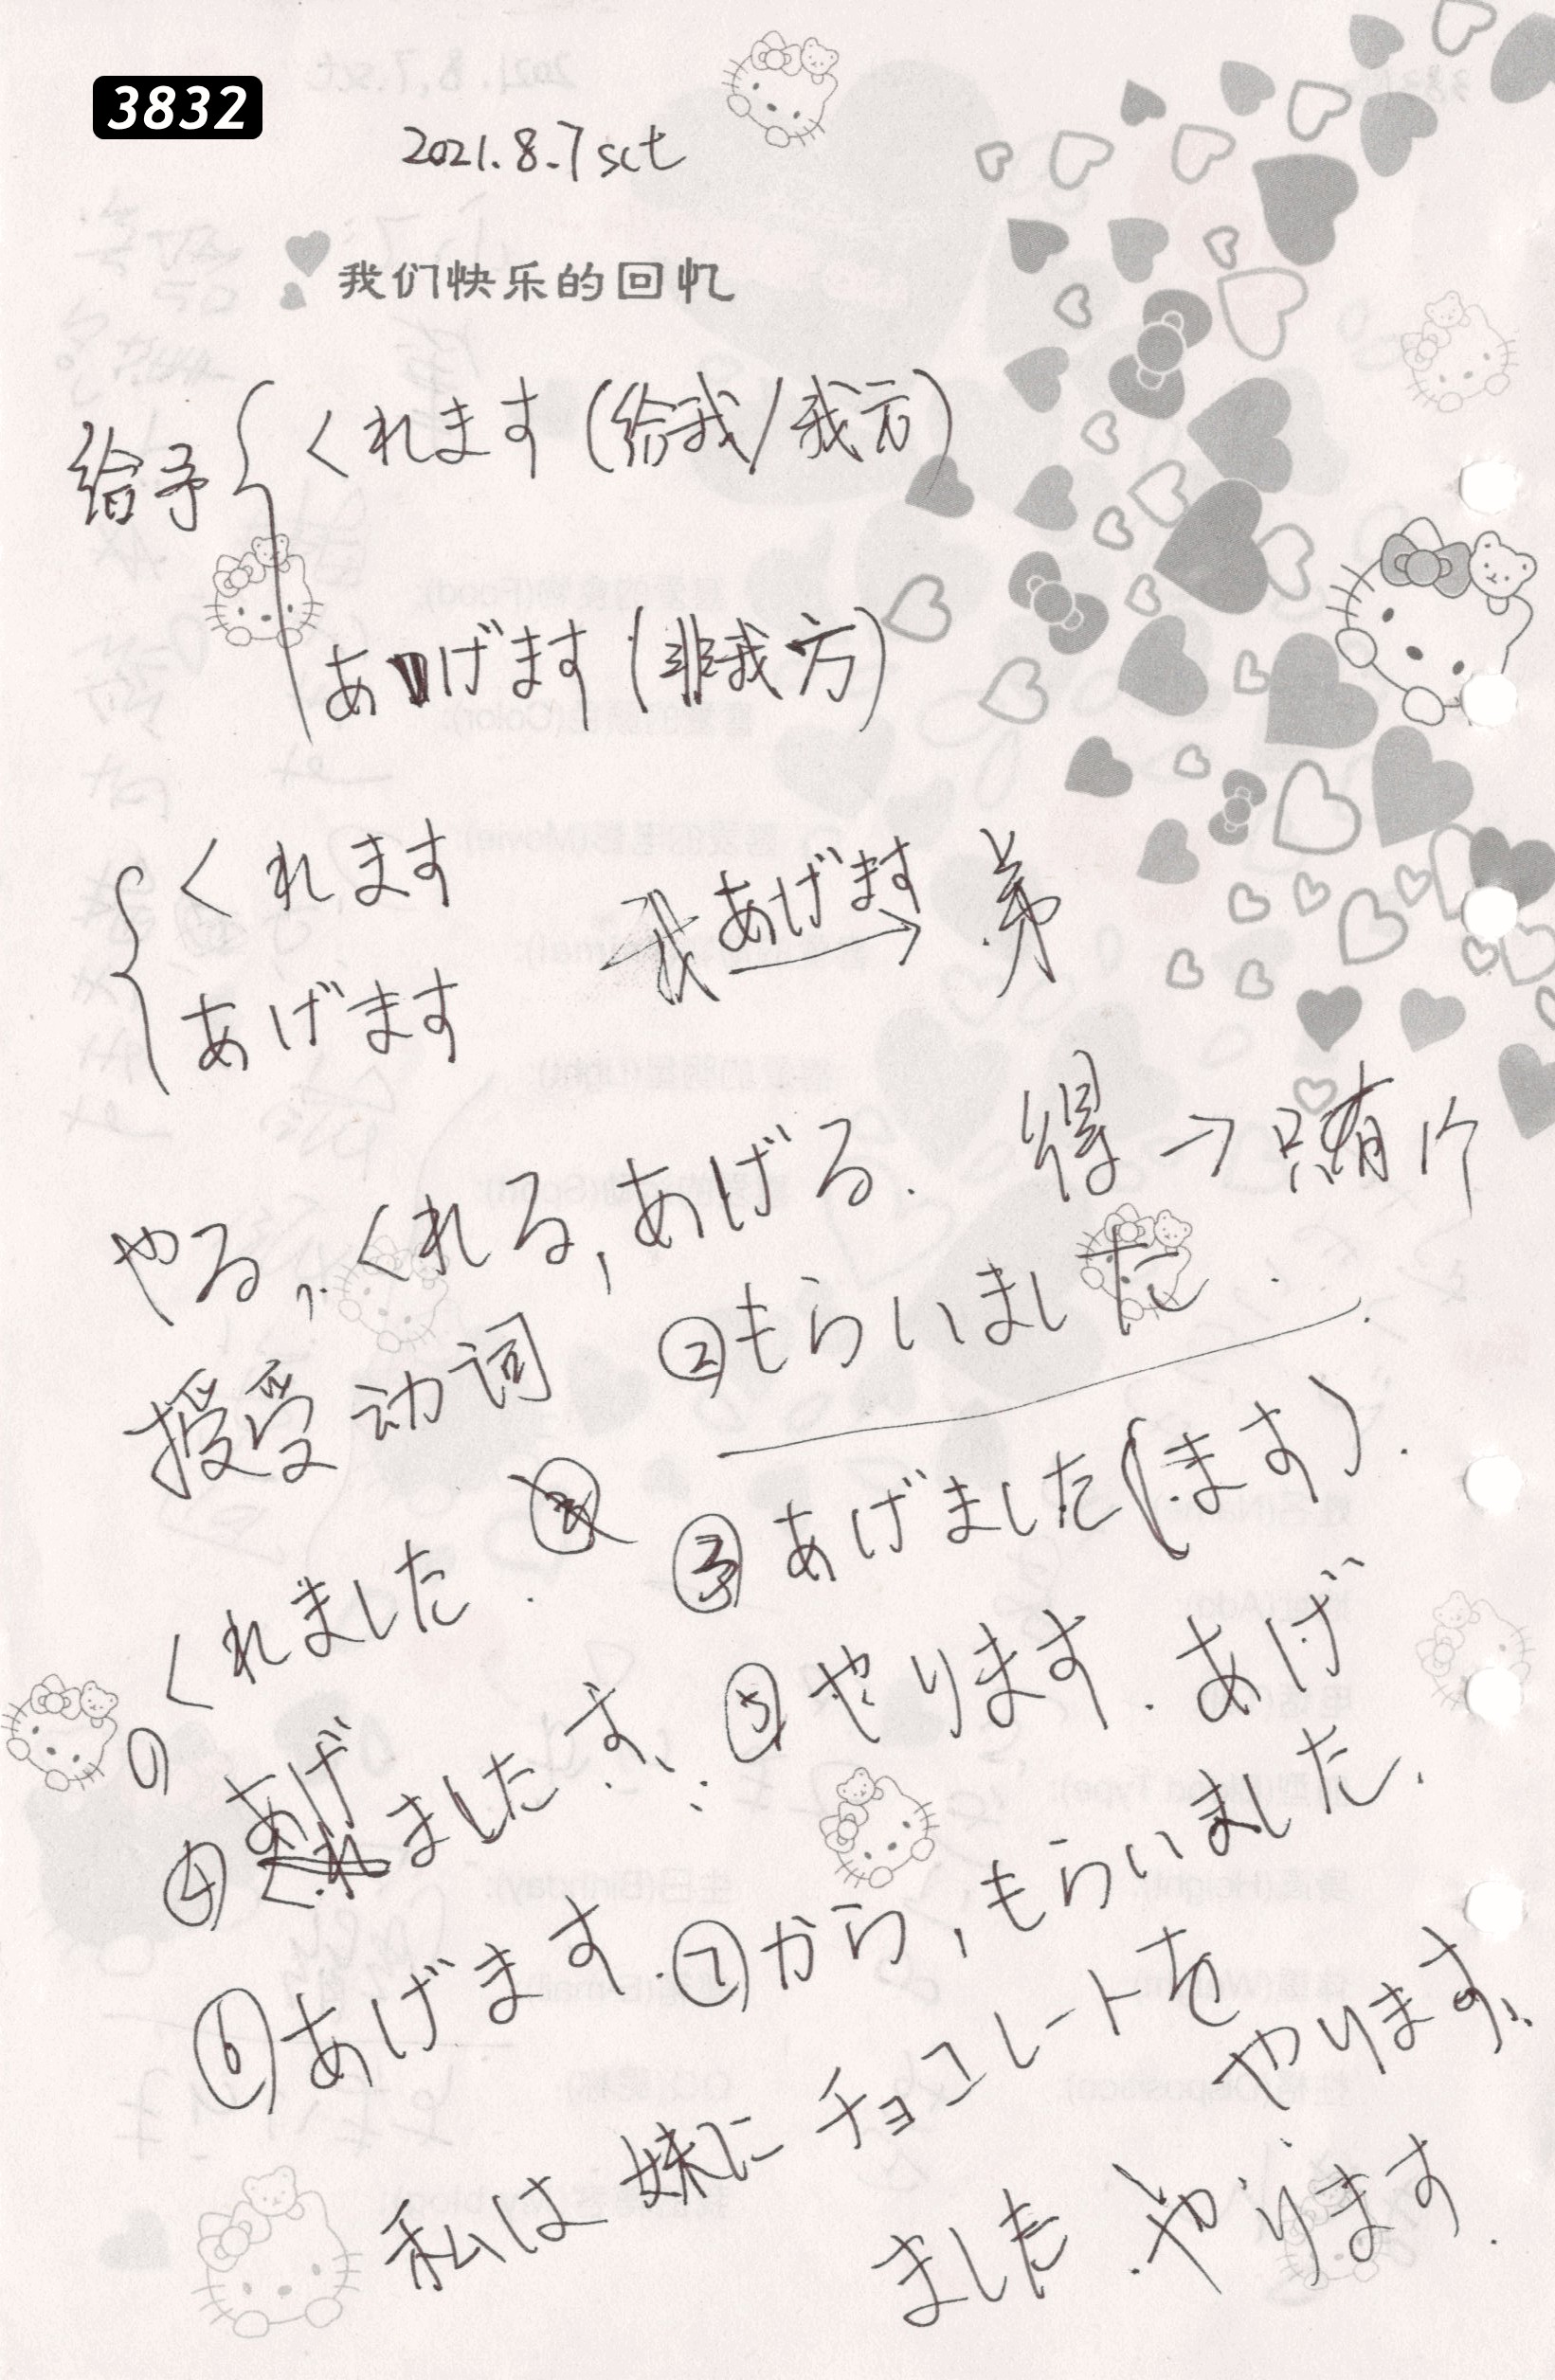 3832
2021.8.7 sct
我们快乐的回忆
给予
くれます (给我/我方)
あげます (非我方)
くれます
あげます
我 あげます → 弟
やる, くれる, あげる. 得 → 只有1个
授受动词 ②もらいました.
くれました. ③あげました(ます).
④あげましたす. ⑤やります. あげ
⑥あげます. ⑦から, もらいました.
私は妹にチョコレートを
やります.
ました. やります.